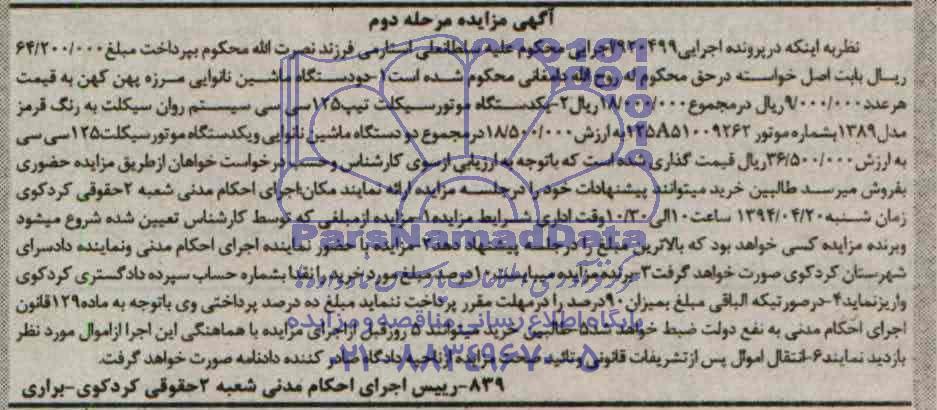 آگهی مزایده مرحله دوم
نظر به اینکه در پرونده اجرایی ۷۹۳۰۴۹۹ اجرایی محکوم علیه سلطانعلی استارمی فرزند نصرت الله محکوم بپرداخت مبلغ ۶۴/۲۰۰/۰۰۰
ریال بابت اصل خواسته در حق محکوم له روح الله دامغانی محکوم شده است ۱-دودستگاه ماشین نانوایی مرزه پهن کهن به قیمت
هر عدد ۹/۰۰۰/۰۰۰ ریال در مجموع ۱۸/۰۰۰/۰۰۰ ریال ۲-یکدستگاه موتورسیکلت تیپ ۱۲۵ سی سی سیستم روان سیکلت به رنگ قرمز
مدل ۱۳۸۹ بشماره موتور به ارزش ۱۸/۵۰۰/۰۰۰ در مجموع دو دستگاه ماشین نانوایی و یکدستگاه موتورسیکلت ۱۲۵ سی سی
به ارزش ۳۶/۵۰۰/۰۰۰ ریال قیمت گذاری شده است که باتوجه به ارزیابی از سوی کارشناس و حسب درخواست خواهان از طریق مزایده حضوری
بفروش میرسد طالبین خرید میتوانند پیشنهادات خود را در جلسه مزایده ارائه نمایند مکان:اجرای احکام مدنی شعبه ۲حقوقی کردکوی
زمان شنبه ۱۳۹۴/۰۴/۲۰ ساعت ۱۰ الی ۱۰/۳۰ وقت اداری شرایط مزایده ۱-مزایده از مبلغی که توسط کارشناس تعیین شده شروع میشود
وبرنده مزایده کسی خواهد بود که بالاترین مبلغ را در جلسه پیشنهاد دهد ۲-مزایده با حضور نماینده اجرای احکام مدنی ونماینده دادسرای
شهرستان کردکوی صورت خواهد گرفت ۳-برنده مزایده میبایست ۱۰ درصد مبلغ مورد خرید را نقدا بشماره حساب سپرده دادگستری کردکوی
واریزنماید ۴-درصورتیکه الباقی مبلغ بمیزان ۹۰ درصد را در مهلت مقرر پرداخت ننماید مبلغ ده درصد پرداختی وی باتوجه به ماده ۱۲۹ قانون
اجرای احکام مدنی به نفع دولت ضبط خواهد شد ۵-طالبین خرید میتوانند ۵ روز قبل از اجرای مزایده با هماهنگی این اجرا از اموال مورد نظر
بازدید نمایند ۶-انتقال اموال پس از تشریفات قانونی وتائید صحت مزایده از ناحیه دادگاه صادر کننده دادنامه صورت خواهد گرفت.
۸۳۹-رییس اجرای احکام مدنی شعبه ۲حقوقی کردکوی-براری
ParsNamadData
پایگاه اطلاع رسانی مناقصه و مزایده
۰۲۱-۸۸۳۴۹۶۷۰-۵